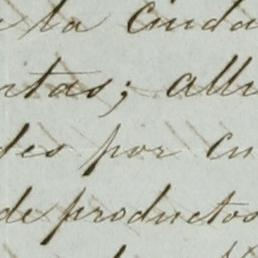 la Ciuda
ntas; alli
por cu
de productos